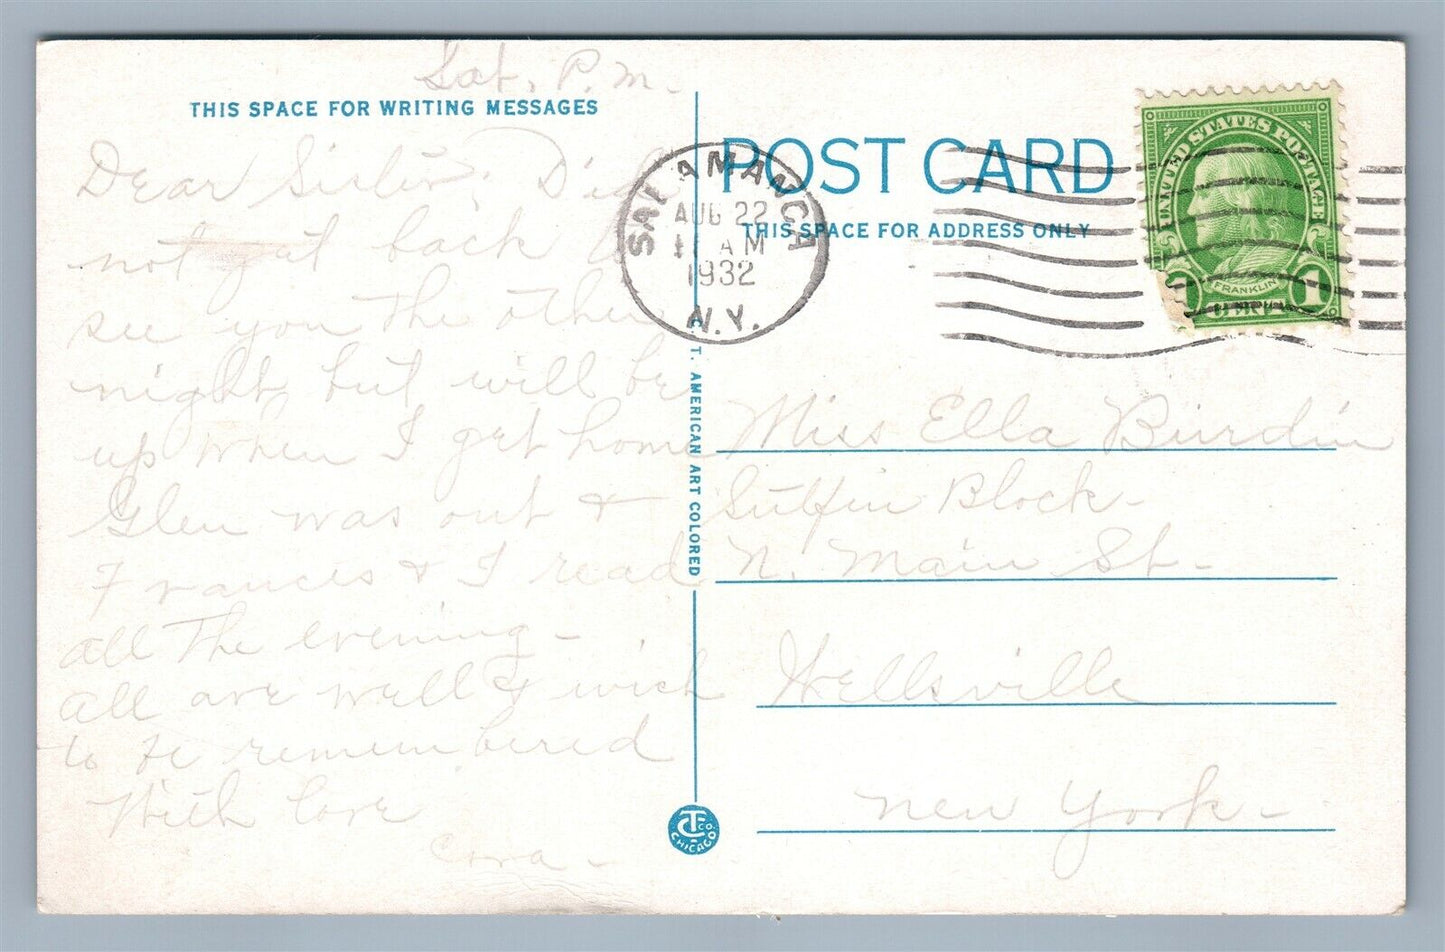 Sat. P.M.
THIS SPACE FOR WRITING MESSAGES
Dear Sister; Did
not get back to
see you the other
night but will be
up when I get home
Glen was out &
Frances & I read
all the evening -
all are well & wish
to be remembered
With love
Cora -
C. T. AMERICAN ART COLORED
CTCO. CHICAGO
POST CARD
THIS SPACE FOR ADDRESS ONLY
SALAMANCA
AUG 22
11 AM
1932
N.Y.
UNITED STATES POSTAGE
FRANKLIN
1 CENT 1
Miss Ella Burdin
Block -
N. Main St -
Wellsville
New York -